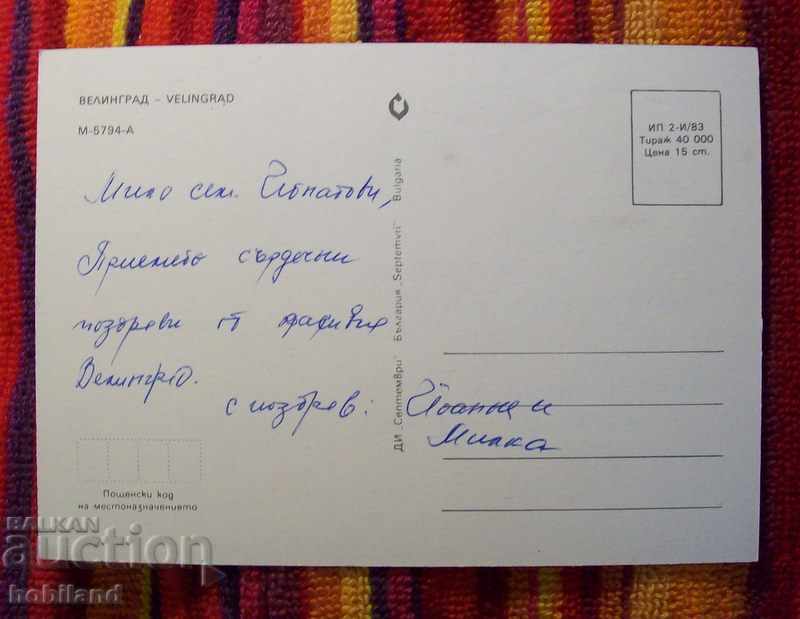 ВЕЛИНГРАД – VELINGRAD
М-5794-А
ИП 2-И/83
Тираж 40 000
Цена 15 ст.
Мило сем.
Приемете сърдечни
поздрави от
Велинград.
с поздрав:
Милка
ДИ „Септември" България „Septemvri" Bulgaria
Пощенски код
на местоназначението
BALKAN
auction
hobiland